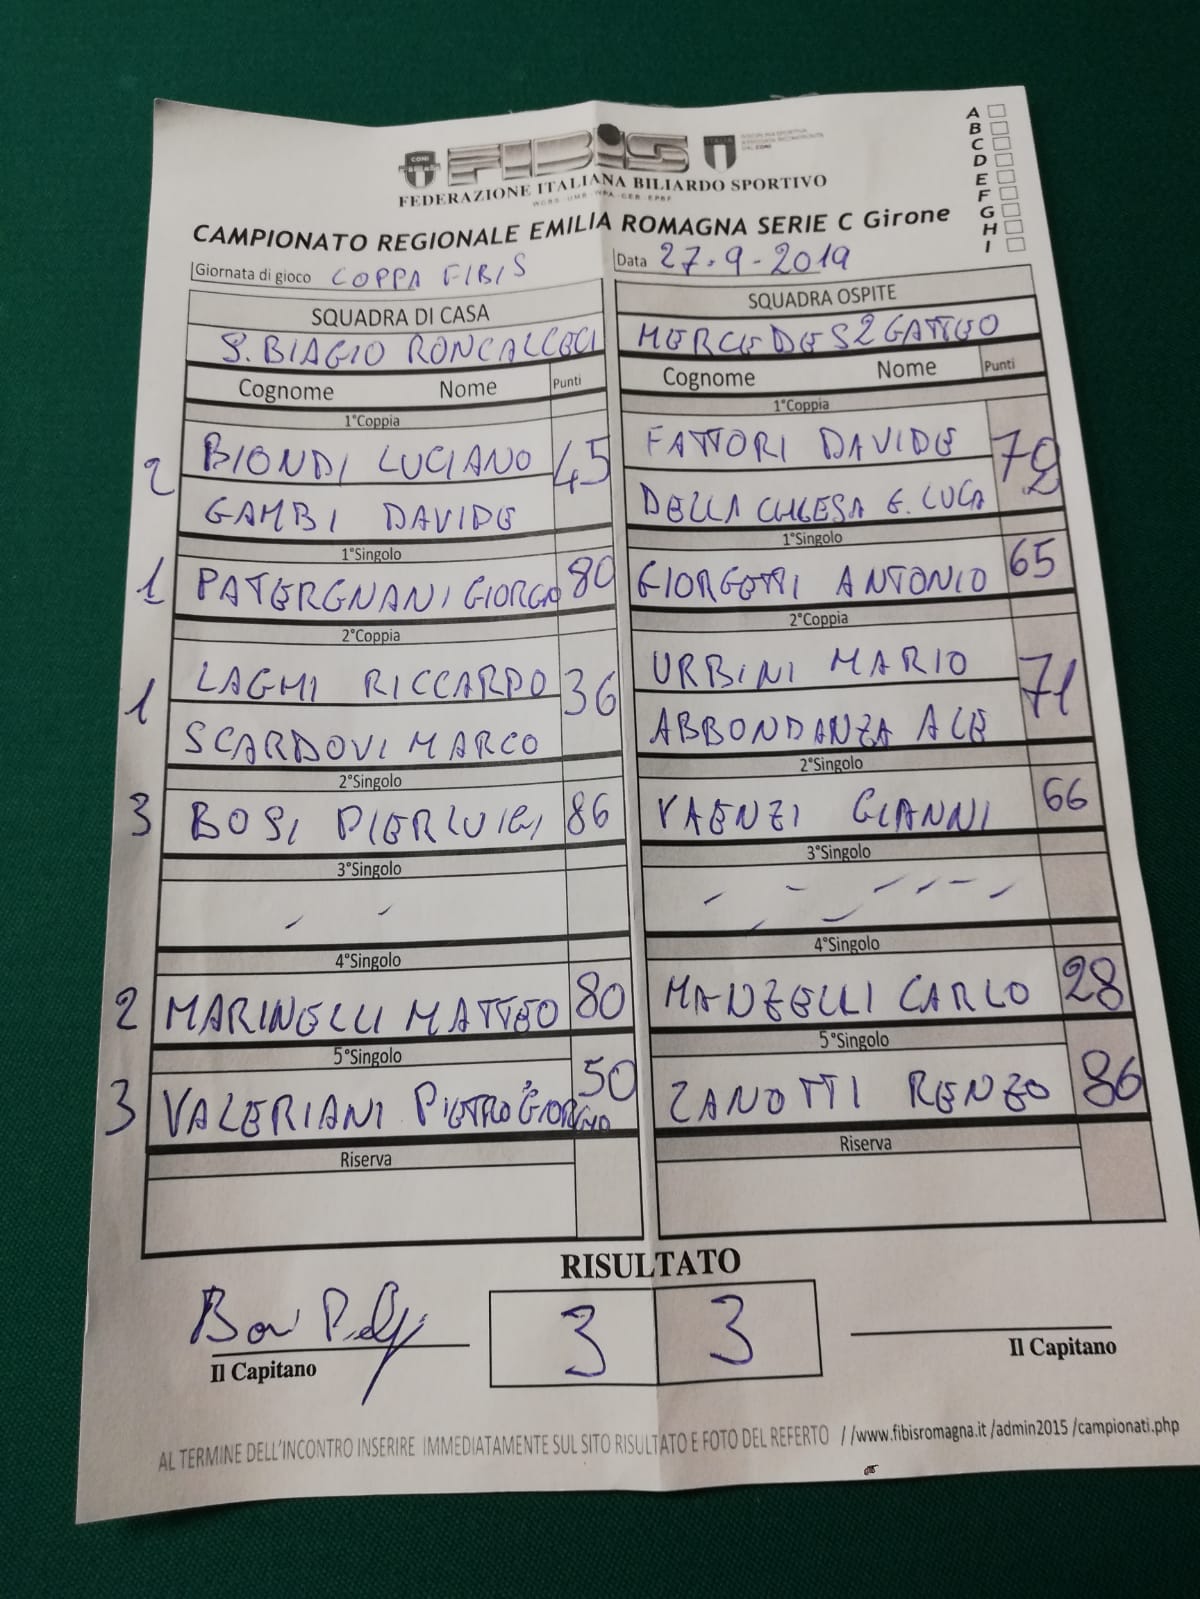 A
B
C
D
E
F
G
H
I
CONI FIBIS ITALIA
FEDERAZIONE ITALIANA BILIARDO SPORTIVO
CAMPIONATO REGIONALE EMILIA ROMAGNA SERIE C Girone
Giornata di gioco COPPA FIBIS Data 27-9-2019
SQUADRA DI CASA SQUADRA OSPITE
S. BIAGIO RONCALCECI MERCEDES 2 GATTEO
Cognome Nome Punti Cognome Nome Punti
1°Coppia 1°Coppia
2 BIONDI LUCIANO 45 FATTORI DAVIDE 72
GAMBI DAVIDE DELLA CHIESA G. LUCA
1°Singolo 1°Singolo
1 PATERGNANI GIORGIO 80 GIORGETTI ANTONIO 65
2°Coppia 2°Coppia
1 LAGHI RICCARDO 36 URBINI MARIO 71
SCARDOVI MARCO ABBONDANZA ALE
2°Singolo 2°Singolo
3 BOSI PIERLUIGI 86 VAENZI GIANNI 66
3°Singolo 3°Singolo
4°Singolo 4°Singolo
2 MARINELLI MATTEO 80 MANZELLI CARLO 28
5°Singolo 5°Singolo
3 VALERIANI PIETRO GIORGIO 50 ZANOTTI RENZO 86
Riserva Riserva
RISULTATO
3 3
Il Capitano Il Capitano
AL TERMINE DELL'INCONTRO INSERIRE IMMEDIATAMENTE SUL SITO RISULTATO E FOTO DEL REFERTO //www.fibisromagna.it /admin2015 /campionati.php